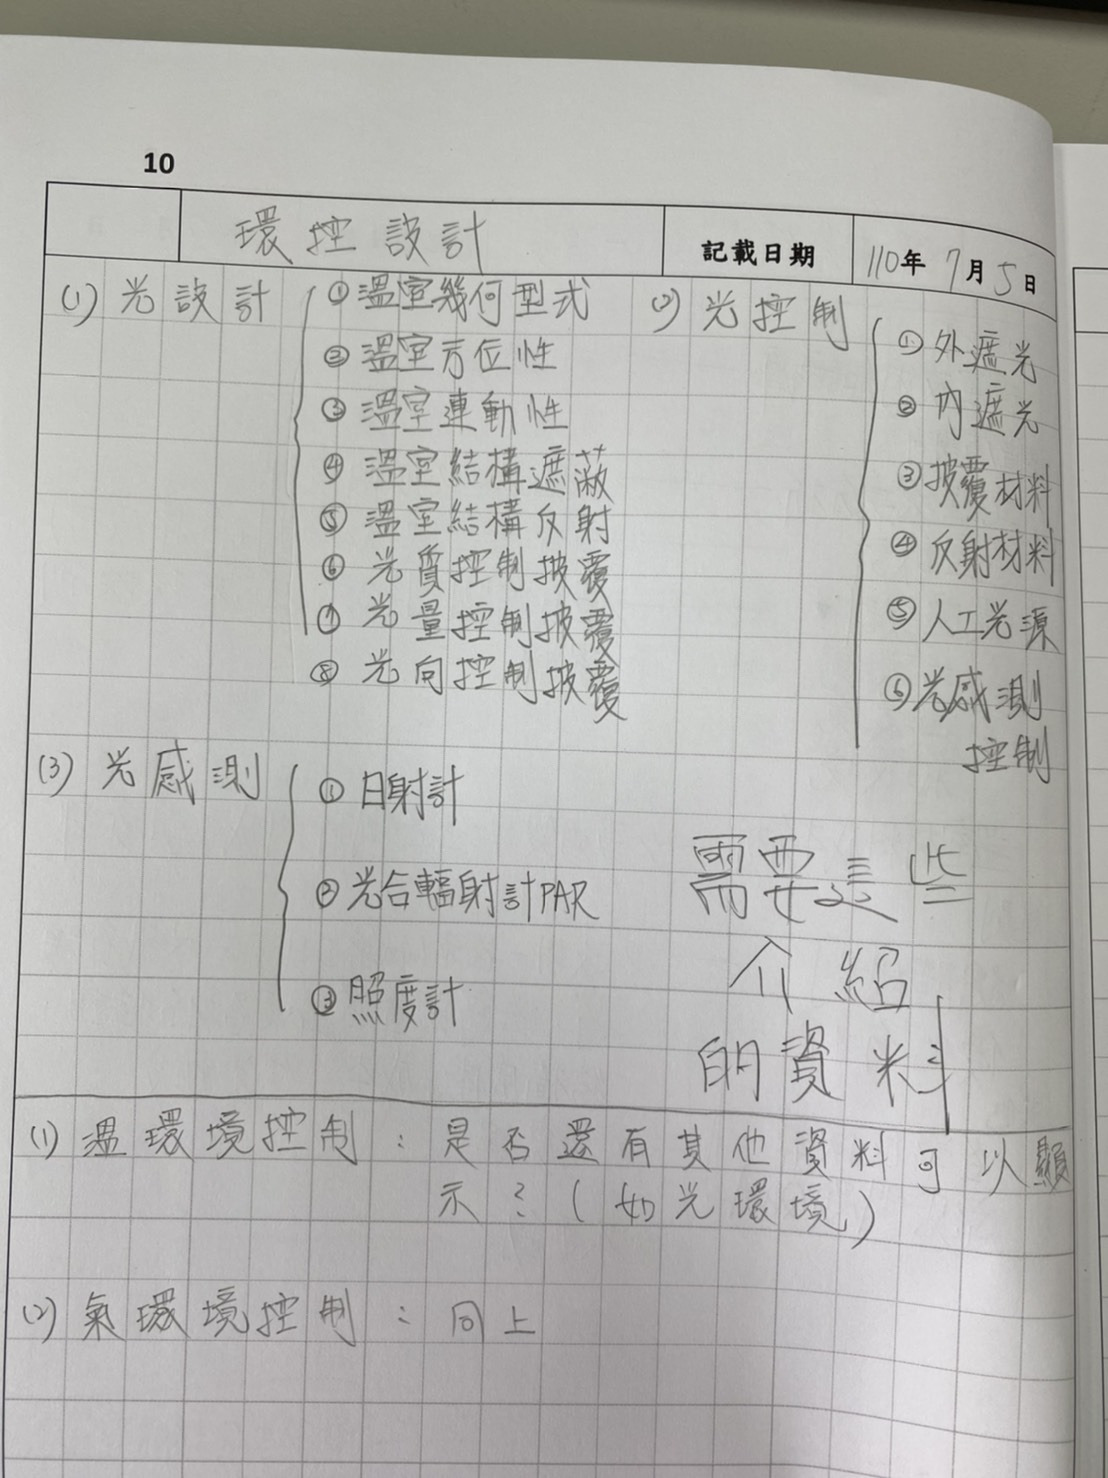 10
環控設計 記載日期 110年7月5日
(1) 光設計
① 溫室幾何型式
② 溫室方位性
③ 溫室連動性
④ 溫室結構遮蔽
⑤ 溫室結構反射
⑥ 光質控制披覆
⑦ 光量控制披覆
⑧ 光向控制披覆
(2) 光控制
① 外遮光
② 內遮光
③ 披覆材料
④ 反射材料
⑤ 人工光源
⑥ 光感測
控制
(3) 光感測
① 日射計
② 光合輻射計PAR
③ 照度計
需要這些
介紹
的資料
(1) 溫環境控制:是否還有其他資料可以顯
示?(如光環境)
(2) 氣環境控制:同上